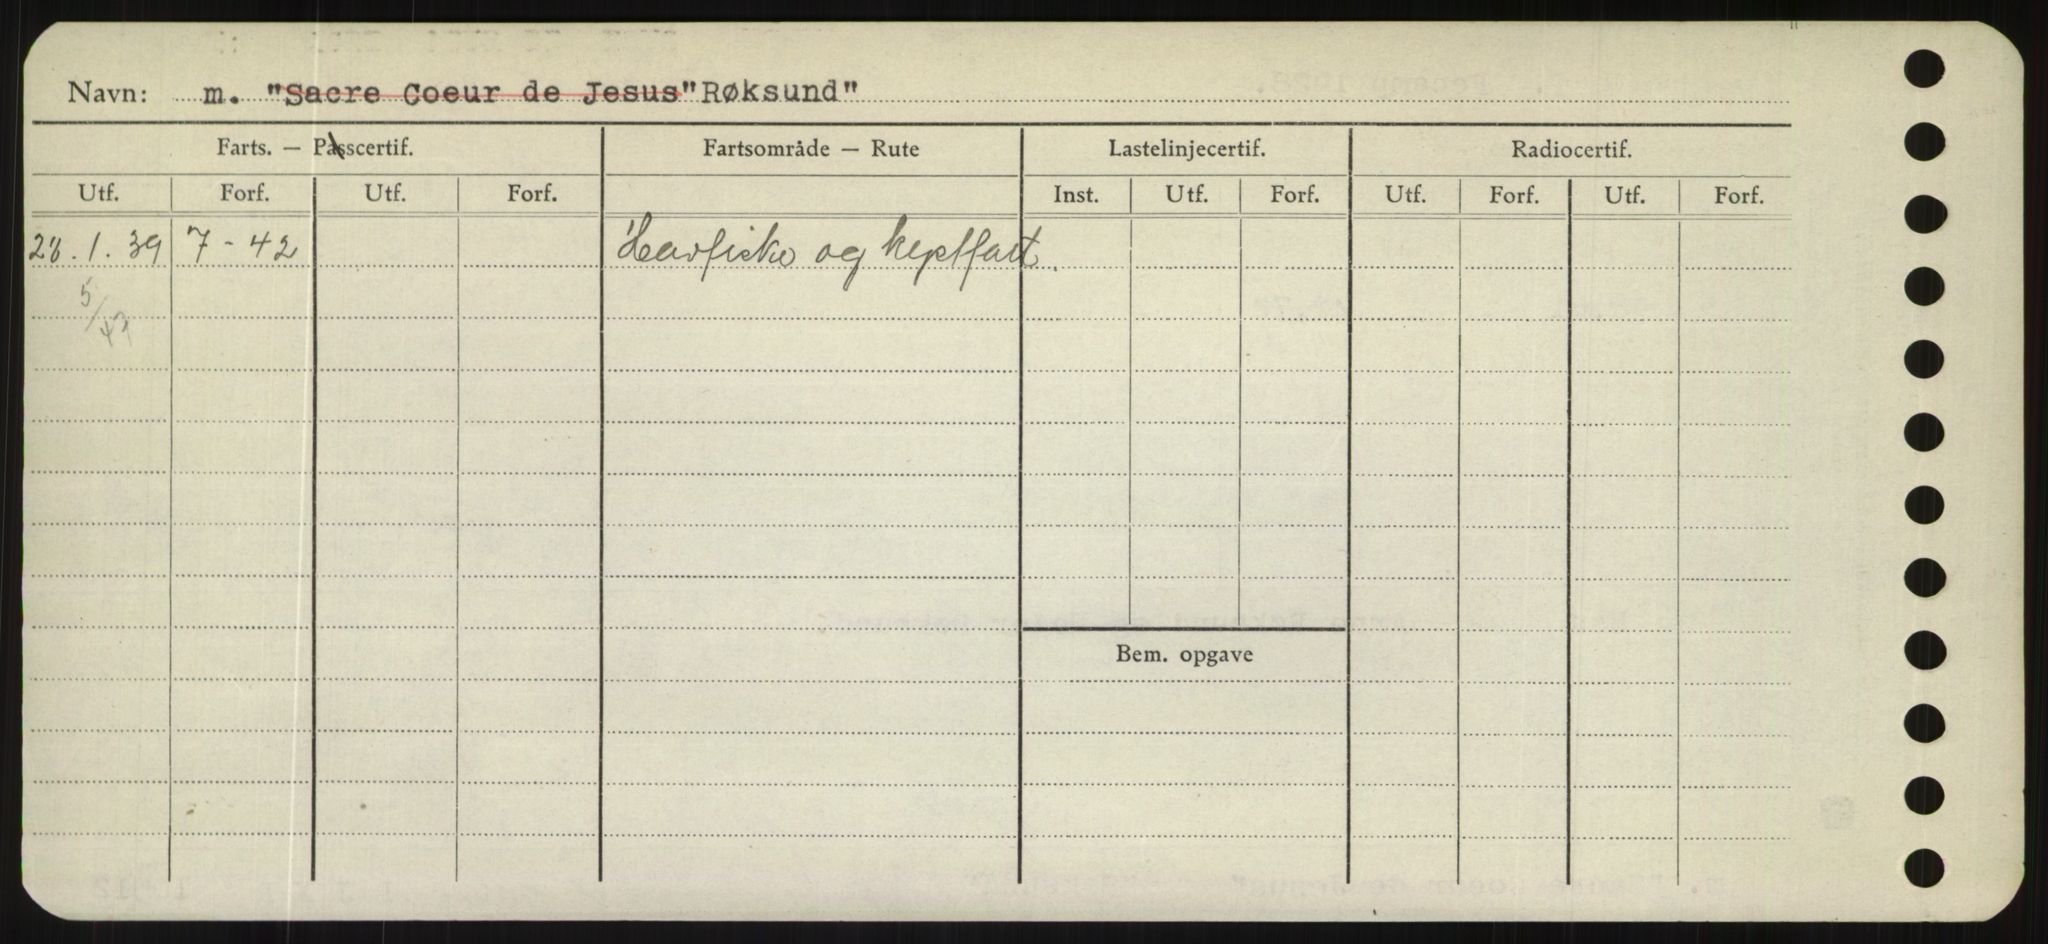 Navn: m. "Sacre Coeur de Jesus" Røksund"
Farts. — Passcertif. Fartsområde — Rute Lastelinjecertif. Radiocertif.
Utf. Forf. Utf. Forf. Inst. Utf. Forf. Utf. Forf. Utf. Forf.
28.1.39 7-42 Havfiske og kystfart.
5/43
Bem. opgave